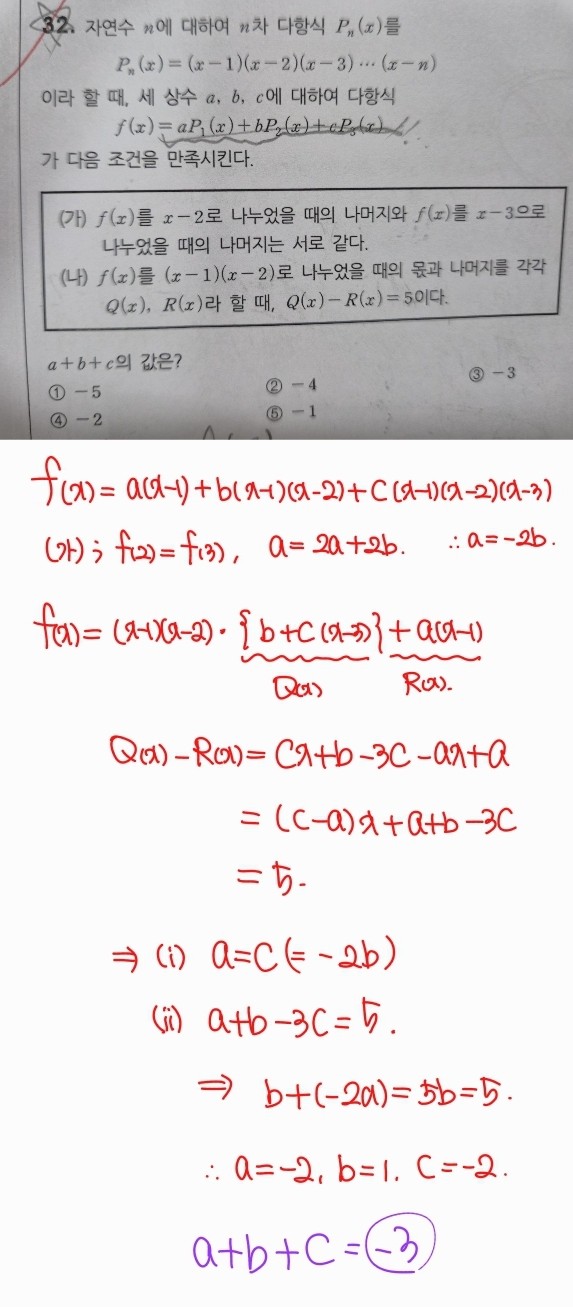 32. 자연수 n에 대하여 n차 다항식 Pₙ(x)를
Pₙ(x)=(x-1)(x-2)(x-3)⋯(x-n)
이라 할 때, 세 상수 a, b, c에 대하여 다항식
f(x)=aP₁(x)+bP₂(x)+cP₃(x)
가 다음 조건을 만족시킨다.
(가) f(x)를 x-2로 나누었을 때의 나머지와 f(x)를 x-3으로
나누었을 때의 나머지는 서로 같다.
(나) f(x)를 (x-1)(x-2)로 나누었을 때의 몫과 나머지를 각각
Q(x), R(x)라 할 때, Q(x)-R(x)=5이다.
a+b+c의 값은?
① -5 ② -4 ③ -3
④ -2 ⑤ -1
f(x)= a(x-1)+b(x-1)(x-2)+C(x-1)(x-2)(x-3)
(가) ; f(2)=f(3), a=2a+2b. ∴ a=-2b.
f(x)= (x-1)(x-2)·{b+C(x-3)}+a(x-1)
Q(x) R(x).
Q(x)-R(x)= Cx+b-3C-ax+a
= (C-a)x+a+b-3C
= 5.
⇒ (i) a=C(=-2b)
(ii) a+b-3C=5.
⇒ b+(-2a)=5b=5.
∴ a=-2, b=1, C=-2.
a+b+C=-3